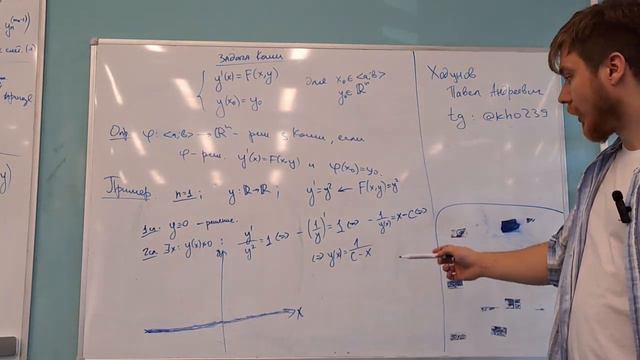 Задача Коши
{ y'(x) = F(x,y)
y(x₀) = y₀
для x₀ ∈ <a;b>
y₀ ∈ ℝⁿ
Опр. φ: <a;b> → ℝⁿ - реш. з. Коши, если
φ - реш. y'(x) = F(x,y) и φ(x₀) = y₀.
Пример. n=1; y: ℝ→ℝ; y' = y² ← F(x,y) = y²
1сл. y≡0 - решение.
2сл. ∃x: y(x)≠0: y'/y² = 1 ⇔ -(1/y)' = 1 ⇔ -1/y(x) = x - C ⇔
⇔ y(x) = 1/(C - x)
x
Ходунов
Павел Андреевич
tg: @kho239